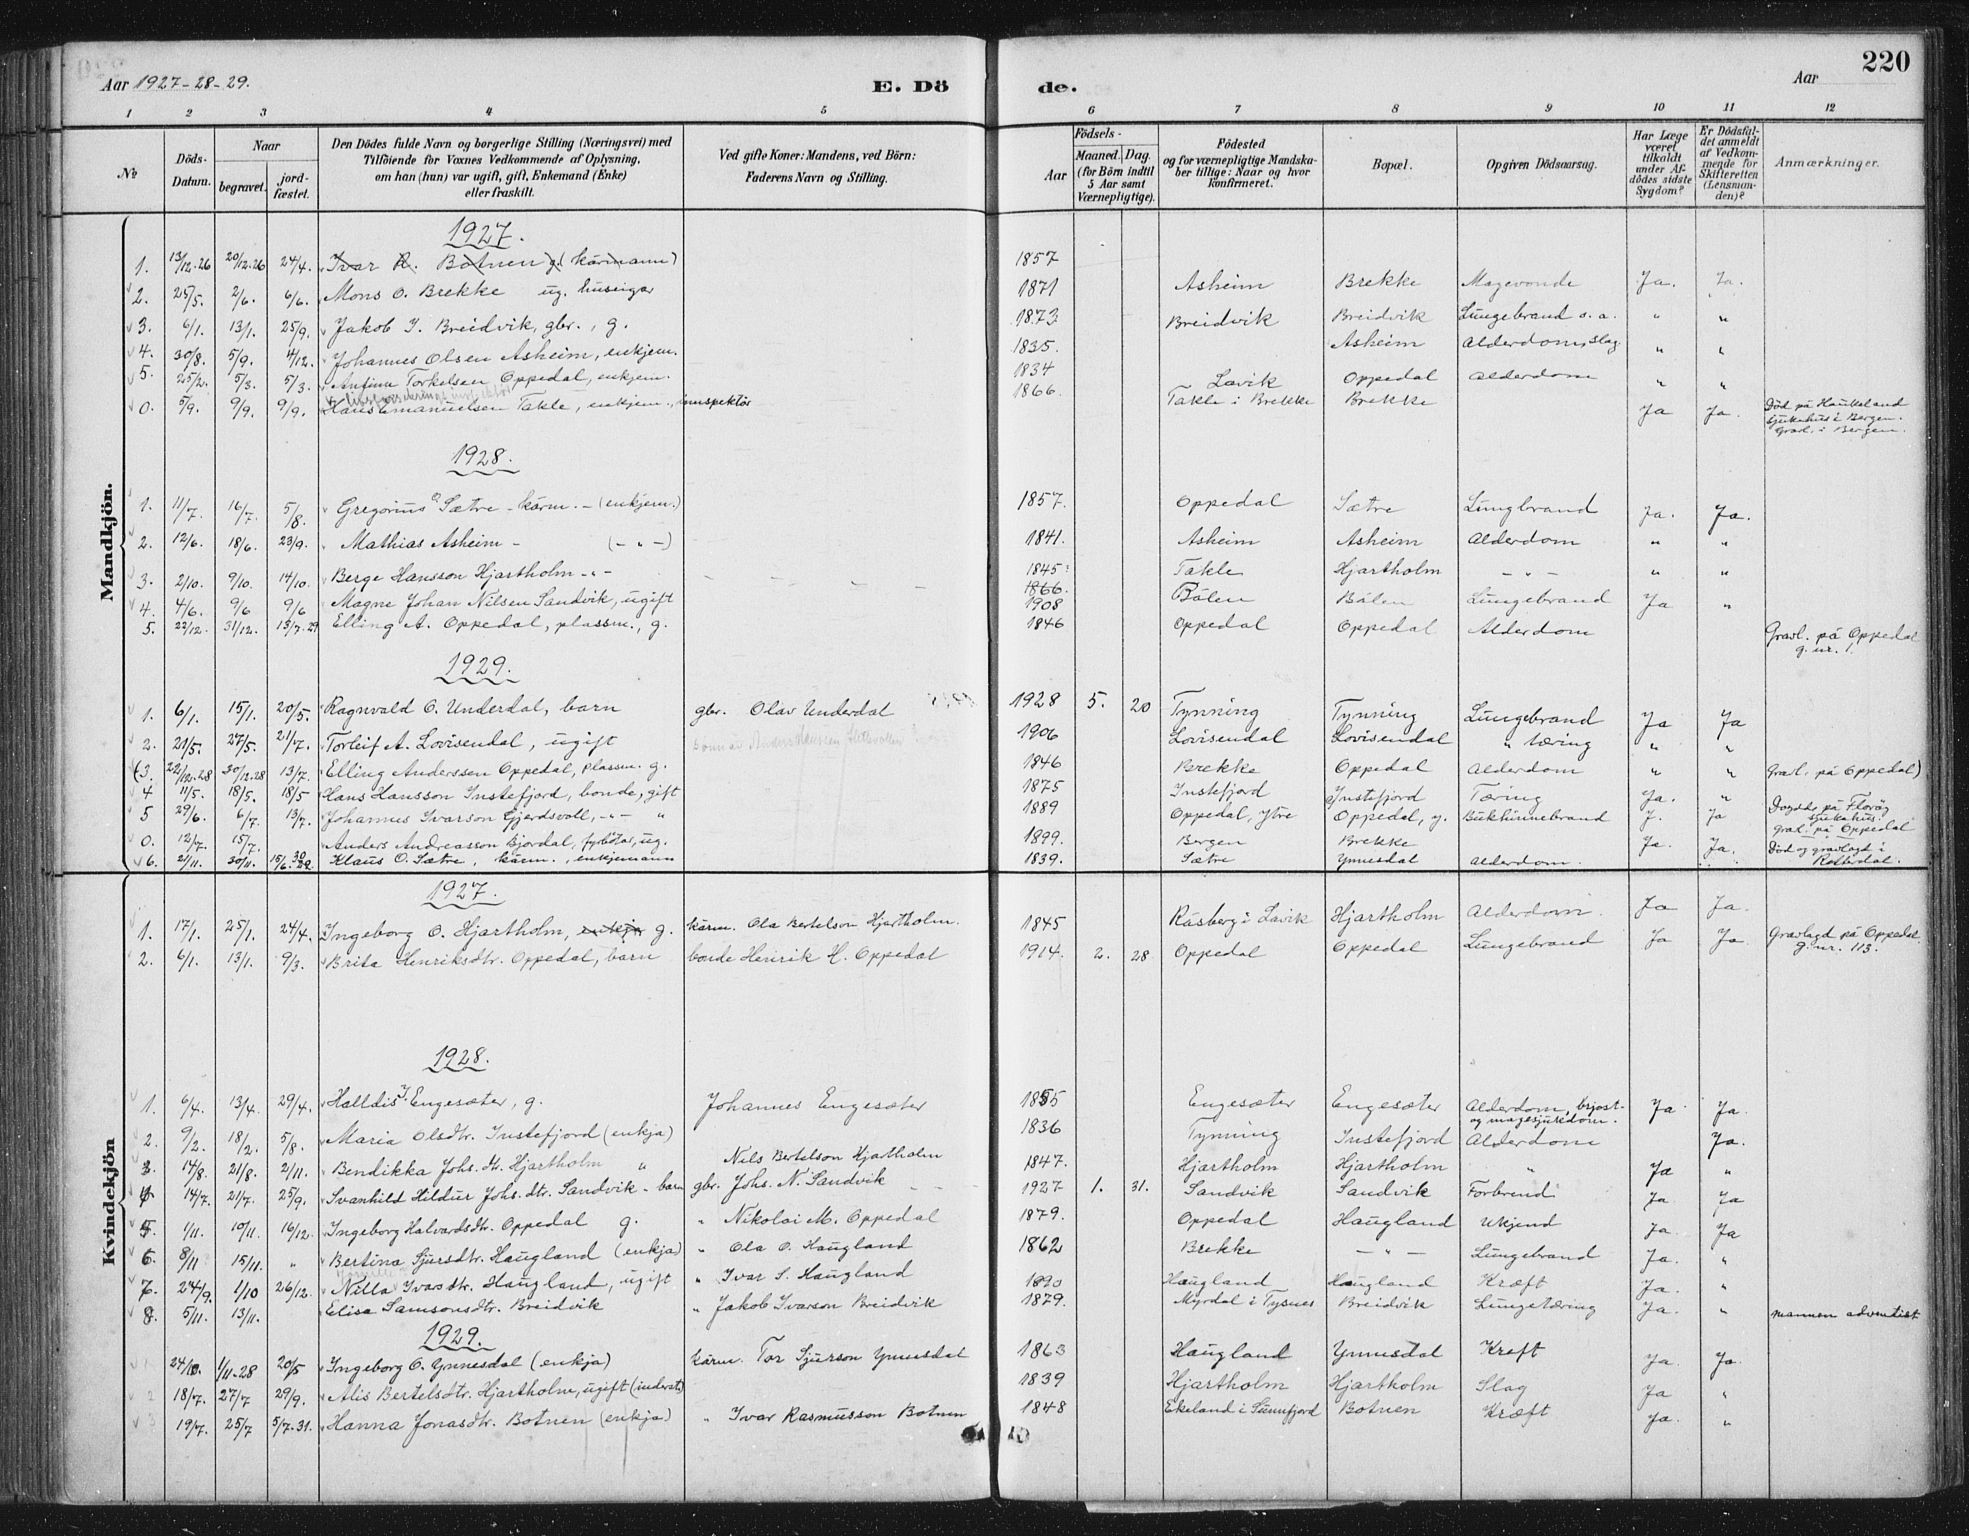 220
Aar 1927-28-29. E. Dö de. Aar
1 2 3 4 5 6 7 8 9 10 11 12
No
Döds-Datum.
Naar
begravet.
jord-fæstet.
Den Dödes fulde Navn og borgerlige Stilling (Næringsvei) med
Tilföiende for Voxnes Vedkommende af Oplysning,
om han (hun) var ugift, gift, Enkemand (Enke)
eller fraskilt.
Ved gifte Koner: Mandens, ved Börn:
Faderens Navn og Stilling.
Födsels-
Aar
Maaned. Dag.
(for Börn indtil
5 Aar samt
Værnepligtige).
Födested
og for værnepligtige Mandska-
ber tillige: Naar og hvor
konfirmeret.
Bopæl.
Opgiven Dödsaarsag.
Har Læge
været
tilkaldt
under Af-
dödes sidste
Sygdom?
Er Dödsfal-
det anmeldt
af Vedkom-
mende for
Skifteretten
(Lensman-
den)?
Anmærkninger.
Mandkjön.
1927.
1. 13/12.26 20/12.26 24/4. Ivar R. Botnen g. (kårmann) 1857
2. 25/5. 2/6. 6/6. Mons O. Brekke ug. huseigar 1871 Asheim Brekke Magevonde Ja. Ja.
3. 6/1. 13/1. 25/9. Jakob I. Breidvik, gbr., g. 1873 Breidvik Breidvik Lungebrand o. a. " "
4. 30/8. 5/9. 4/12. Johannes Olsen Asheim, enkjem. 1835. Asheim Alderdom, slag " "
5. 25/2. 5/3. 5/3. Torkelsen Oppedal, enkjem. 1834 Lavik Oppedal Alderdom " "
0. 5/9. 9/9. 9/9. Hans Emanuelsen Takle, enkjem., innspektör 1866. Takle i Brekke Brekke Ja Ja. Död på Haukeland
sjukehus i Bergen.
Gravl. i Bergen.
1928.
1. 11/7. 16/7. 5/8. Gregorius O. Sætre - kårm. - (enkjem.) 1857. Oppedal Sætre Lungbrand Ja. Ja.
2. 12/6. 18/6. 23/9. Mathias Asheim - (- " -) 1841. Asheim Asheim Alderdom " "
3. 2/10. 9/10. 14/10. Berge Hansson Hjartholm - " - 1845. 1866. Takle Hjartholm - " - " "
4. 4/6. 9/6 9/6 Magne Johan Nilsen Sandvik, ugift 1908 Bålen Bålen Lungebrand Ja "
5. 22/12. 31/12. 13/7.29 Elling A. Oppedal, plassm., g. 1846 Oppedal Oppedal Alderdom Gravl. på Oppedal
g. nr. 1.
1929.
1. 6/1. 15/1. 20/5. Ragnvald O. Underdal, barn gbr. Olav Underdal 1928 5. 20 Tynning Tynning Lungebrand Ja Ja
2. 21/5. 27/5. 21/7. Torleif A. Lovisendal, ugift 1906 Lovisendal Lovisendal " tæring " "
(3. 22/12.28 30/12.28 13/7. Elling Anderssen Oppedal, plassm. g. 1846 Brekke Oppedal Alderdom " " Gravl. på Oppedal)
4 11/5. 18/5. 18/5 Hans Hansson Instefjord, bonde, gift 1875 Instefjord Instefjord Tæring Ja. "
5 29/6. 6/7. 13/7. Johannes Ivarson Gjerdsvoll, - " - " 1889 Oppedal, Ytre Oppedal, y. Bukhinnebrand J. Ja Döydde på Florö
sjukehus.
Gravl. på Oppedal
0. 12/7. 15/7. Anders Andreasson Bjordal, fyrböter, ug. 1899. Bergen Brekke Ja. Ja. Död og gravlagd i
Rotterdal.
6. 2/11. 30/11. 15/6.30 Klaus O. Sætre, kårm., enkjemann 1839. Sætre Ynnesdal Alderdom.
Kvindekjön
1927.
1. 17/1. 25/1. 24/4. Ingeborg O. Hjartholm, enkja g. kårm. Ola Bertelson Hjartholm. 1845 Råsberg i Lavik Hjartholm Alderdom Ja Ja.
2. 6/1. 13/1. 9/3. Brita Henriksdtr. Oppedal, barn bonde Henrik H. Oppedal 1914. 2. 28 Oppedal Oppedal Lungebrand Ja Ja. Gravlagd på Oppedal
g. nr. 113.
1928.
1. 6/4. 13/4. 29/4. Halldis J. Engesæter, g. Johannes Engesæter 1855 Engesæter Engesæter Alderdom, brjost-
og magesjukdom. Ja Ja.
2. 9/2. 18/2. 5/8. Maria Olsdtr. Instefjord (enkja) 1836 Tynning Instefjord Alderdom Ja.
3. 14/8. 21/8. 2/11. Bendikka Johs. dt. Hjartholm " Nils Bertelson Hjartholm 1847. Hjartholm Hjartholm " Ja "
4 14/7. 21/7. 25/9. Svanhild Hildur Johs. dtr. Sandvik - barn gbr. Johs. N. Sandvik 1927 1. 31. Sandvik Sandvik Forbrend Ja Ja
5. 1/11. 10/11. 16/12. Ingeborg Halvardsdtr. Oppedal g. " Nikolai M. Oppedal 1879. Oppedal Haugland Ukjend Ja. Ja
6. 8/11 15/11. " Bertina Sjursdtr. Haugland (enkja) " Ola O. Haugland 1862 Brekke - " - Lungebrand Ja. "
7. 24/9. 1/10 26/12. Nilla Ivarsdtr. Haugland, ugift " Ivar S. Haugland 1890 Haugland Haugland Kræft Ja. "
8. 5/11. 13/11. Elisa Samsonsdtr. Breidvik " Jakob Ivarson Breidvik 1879. Myrdal i Tysnes Breidvik Lungetæring Ja. " mannen adventist
1929.
1 24/10. 1/11-28 20/5 Ingeborg O. Ynnesdal (enkja) kårm. Tor Sjurson Ynnesdal 1863 Haugland Ynnesdal Kreft Ja. Ja.
2 18/7. 27/7 29/9. Alis Bertelsdtr. Hjartholm, ugift 1839 Hjartholm Hjartholm Slag Ja "
3 19/7. 25/7 5/7.31. Hanna Jonasdtr. Botnen (enkja) " Ivar Rasmusson Botnen 1848 Ekeland i Sunnfjord Botnen Kræft Ja. "